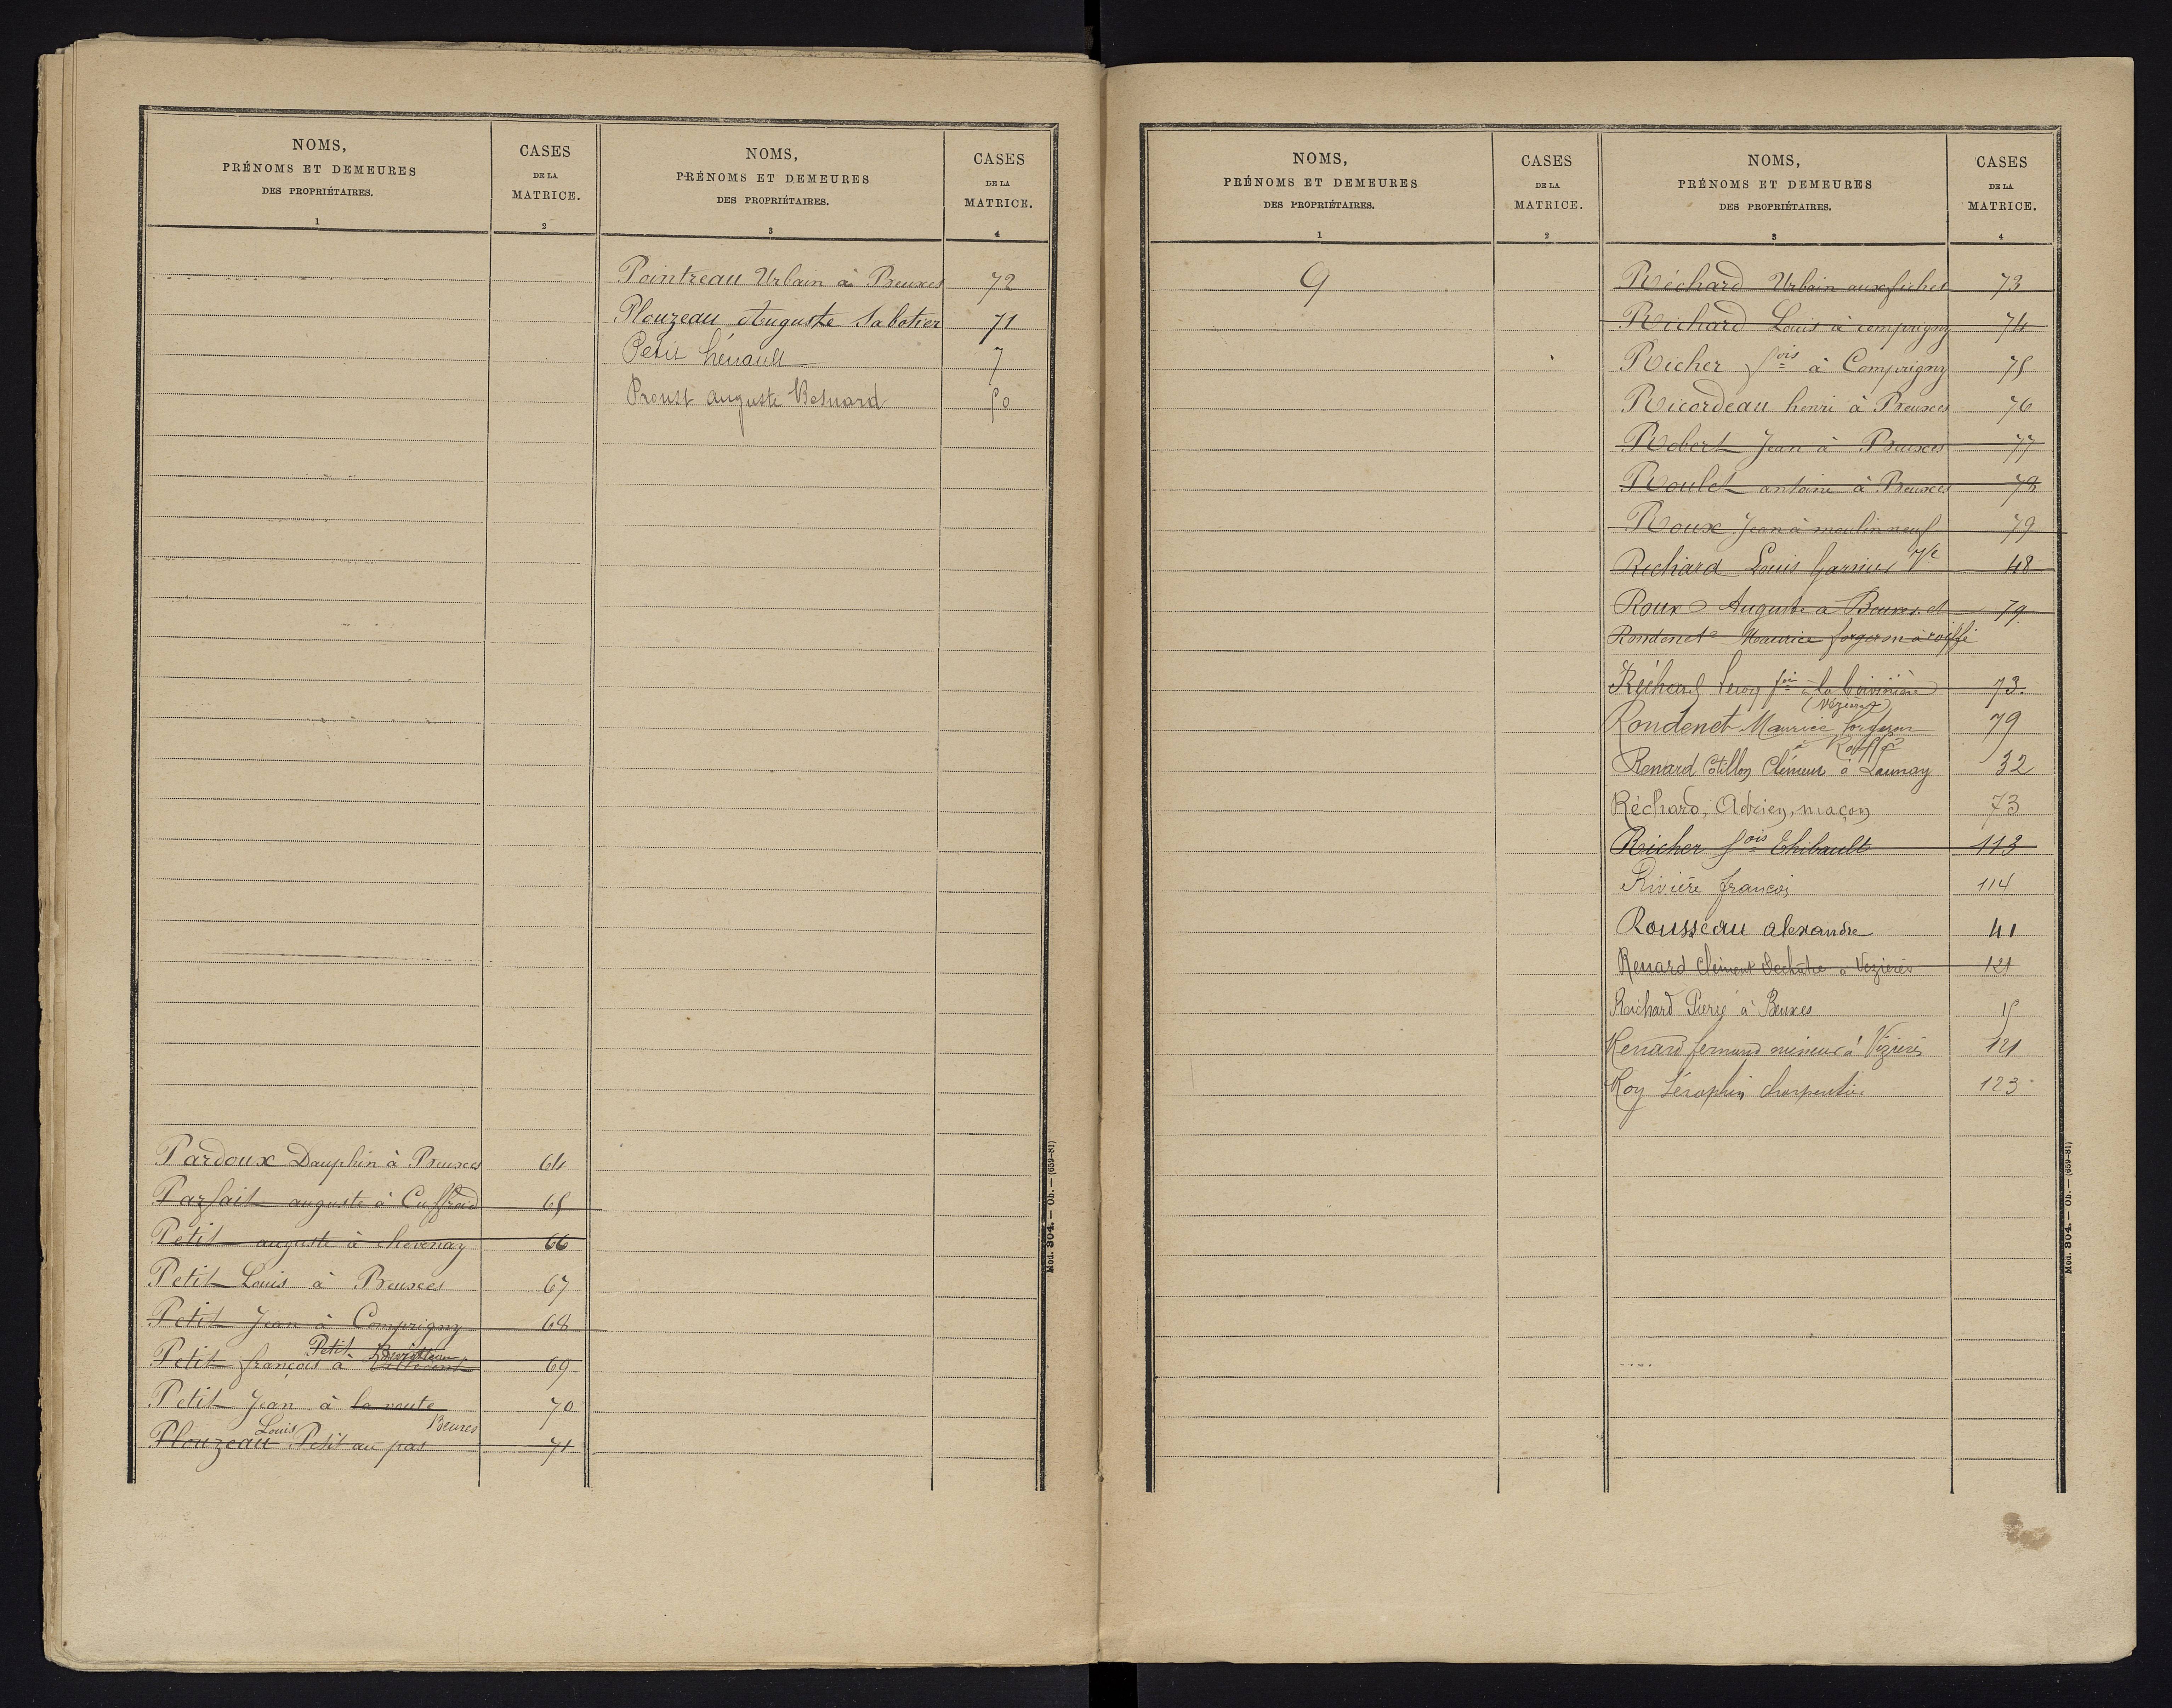 NOMS,
PRÉNOMS ET DEMEURES
DES PROPRIÉTAIRES.
1
CASES
DE LA
MATRICE.
2
Pardoux Dauphin à Beuxes 64
Parfait auguste à Cuffroid 65
Petit auguste à chevenay 66
Petit Louis à Beuxes 67
Petit Jean à Comprigny 68
Petit
Petit françois à 69
Petit Jean à la route 70
Louis Beuxes
Plouzeau Petit au pas 71
NOMS,
PRÉNOMS ET DEMEURES
DES PROPRIÉTAIRES.
3
CASES
DE LA
MATRICE.
4
Pointreau Urbain à Beuxes 72
Plouzeau Auguste Sabotier 71
Petit hénault 7
Proust auguste Besnard 50
Mod. 304. — Ob. — (659-81)
NOMS,
PRÉNOMS ET DEMEURES
DES PROPRIÉTAIRES.
1
CASES
DE LA
MATRICE.
2
Q
NOMS,
PRÉNOMS ET DEMEURES
DES PROPRIÉTAIRES.
3
CASES
DE LA
MATRICE.
4
Réchard Urbain aux fiches 73
Richard Louis à comprigny 74
Richer fois à Comprigny 75
Ricordeau henri à Beuxes 76
Robert Jean à Beuxes 77
Roulet antoine à Beuxes 78
Roux Jean à moulin neuf 79
Richard Louis Garnier Ve 48
Roux Auguste à Beuxes et 79
Rondenet Maurice forgeron à roiffé
Réchard Leroy fois à la boivinière 73
(Vézières)
Rondenet Maurice forgeron 79
à Roiffé
Renard Cotillon Clément à Launay 32
Réchard, Adrien, maçon 73
Richer fois Thibault 113
Rivière françois 114
Rousseau alexandre 41
Renard Clément à Vézières 121
Richard Pierre à Beuxes 15
Renard fernand à Vézières 121
Roy Séraphin charpentier 123
Mod. 304. — Ob. — (659-81)